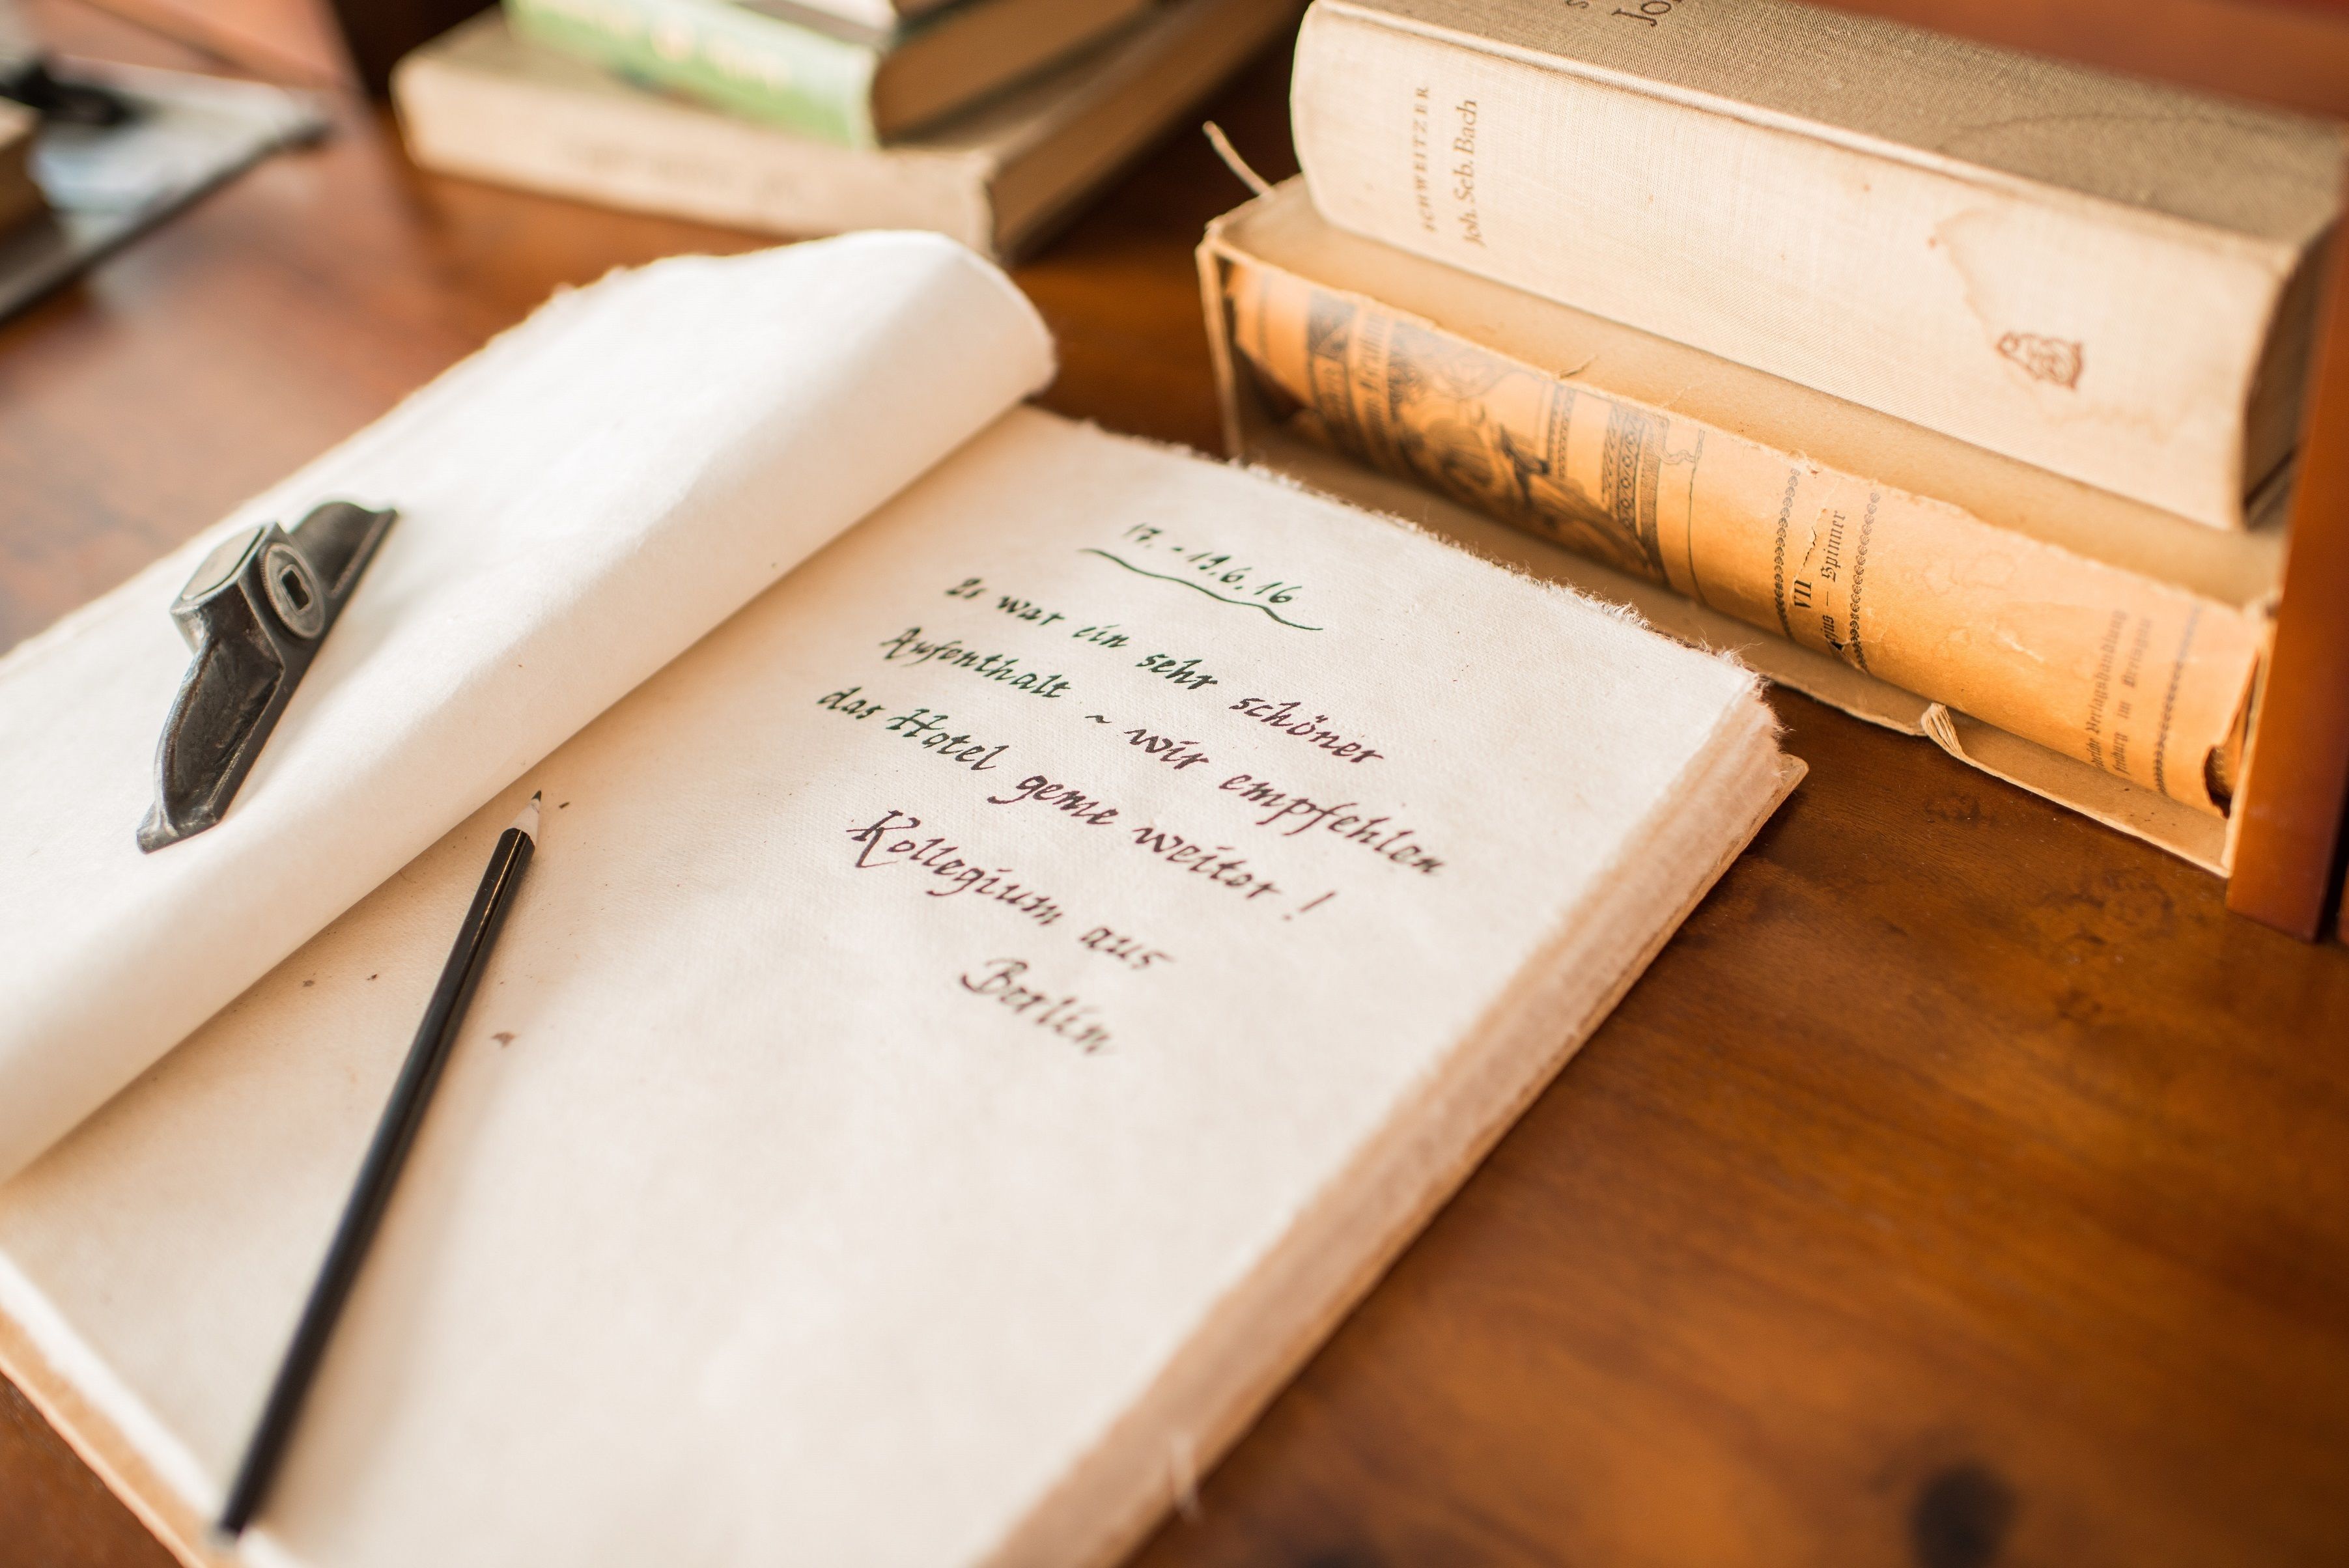 17. - 19.6.16
Es war ein sehr schöner
Aufenthalt ~ wir empfehlen
das Hotel gerne weiter!
Kollegium aus
Berlin
SCHWEITZER
Joh. Seb. Bach
VII
Spinner
Freiburg im Breisgau